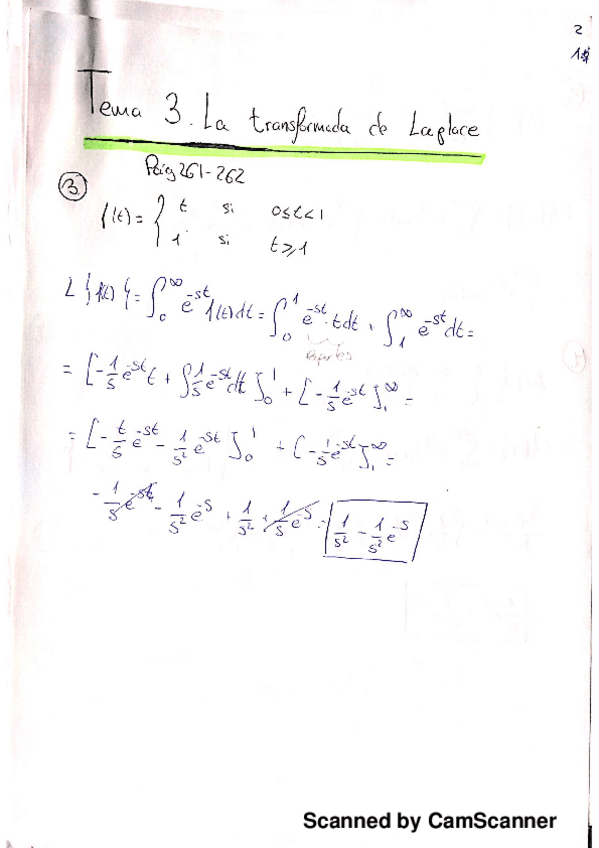 2
Tema 3. La transformada de Laplace
Pág 261-262
③ f(t) = { t si 0≤t<1
1 si t≥1
L{f(t)} = ∫₀^∞ e^-st f(t)dt = ∫₀^1 e^-st · t dt + ∫₁^∞ e^-st dt =
partes
= [-1/s e^-st t + ∫ 1/s e^-st dt]₀^1 + [-1/s e^-st]₁^∞ =
= [-t/s e^-st - 1/s² e^-st]₀^1 + [-1/s e^-st]₁^∞ =
-1/s e^-st - 1/s² e^-s + 1/s² + 1/s e^-s = 1/s² - 1/s² e^-s
Scanned by CamScanner